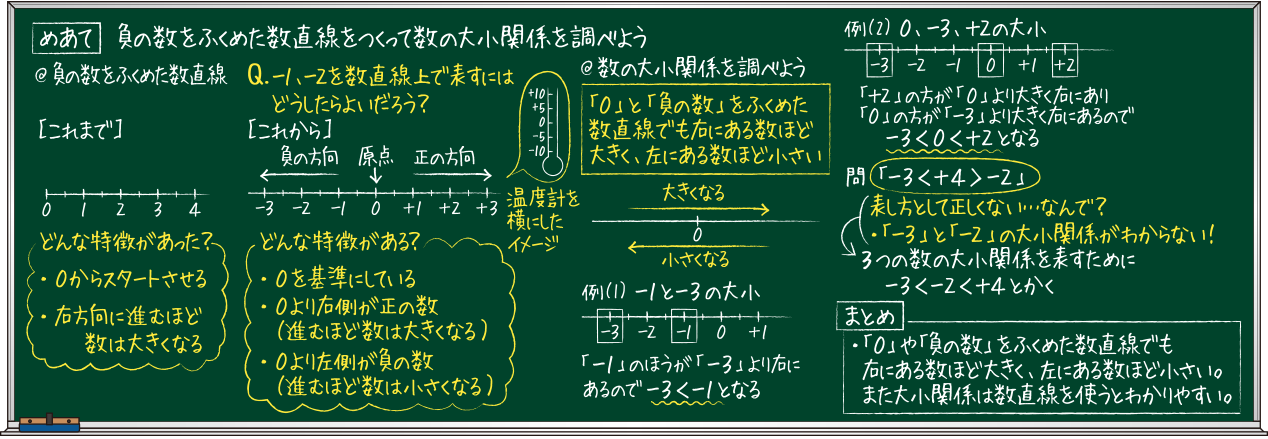 めあて 負の数をふくめた数直線をつくって数の大小関係を調べよう
@負の数をふくめた数直線
[これまで]
0 1 2 3 4
どんな特徴があった?
・0からスタートさせる
・右方向に進むほど
数は大きくなる
Q.-1、-2を数直線上で表すには
どうしたらよいだろう?
[これから]
負の方向 原点 正の方向
-3 -2 -1 0 +1 +2 +3
どんな特徴がある?
・0を基準にしている
・0より右側が正の数
(進むほど数は大きくなる)
・0より左側が負の数
(進むほど数は小さくなる)
+10
+5
0
-5
-10
温度計を
横にした
イメージ
@数の大小関係を調べよう
「0」と「負の数」をふくめた
数直線でも右にある数ほど
大きく、左にある数ほど小さい
大きくなる
0
小さくなる
例(1) -1と-3の大小
-3 -2 -1 0 +1
「-1」のほうが「-3」より右に
あるので-3<-1となる
例(2) 0、-3、+2の大小
-3 -2 -1 0 +1 +2
「+2」の方が「0」より大きく右にあり
「0」の方が「-3」より大きく右にあるので
-3<0<+2となる
問「-3<+4>-2」
表し方として正しくない…なんで?
・「-3」と「-2」の大小関係がわからない!
3つの数の大小関係を表すために
-3<-2<+4とかく
まとめ
・「0」や「負の数」をふくめた数直線でも
右にある数ほど大きく、左にある数ほど小さい。
また大小関係は数直線を使うとわかりやすい。